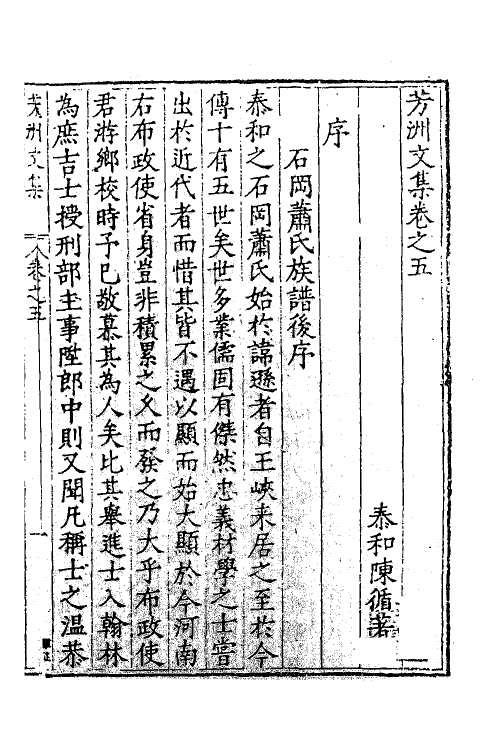 芳洲文集卷之五
泰和陳循著
序
石岡蕭氏族譜後序
泰和之石岡蕭氏始於諱遜者自王峽来居之至於今
傳十有五世矣世多業儒固有傑然忠義材學之士嘗
出於近代者而惜其皆不遇以顯而始大顯於今河南
右布政使省身豈非積累之久而發之乃大乎布政使
君游鄉校時予已敬慕其為人矣比其舉進士入翰林
為庶吉士授刑部主事陞郎中則又聞凡稱士之温恭
芳洲文集
卷之五
一